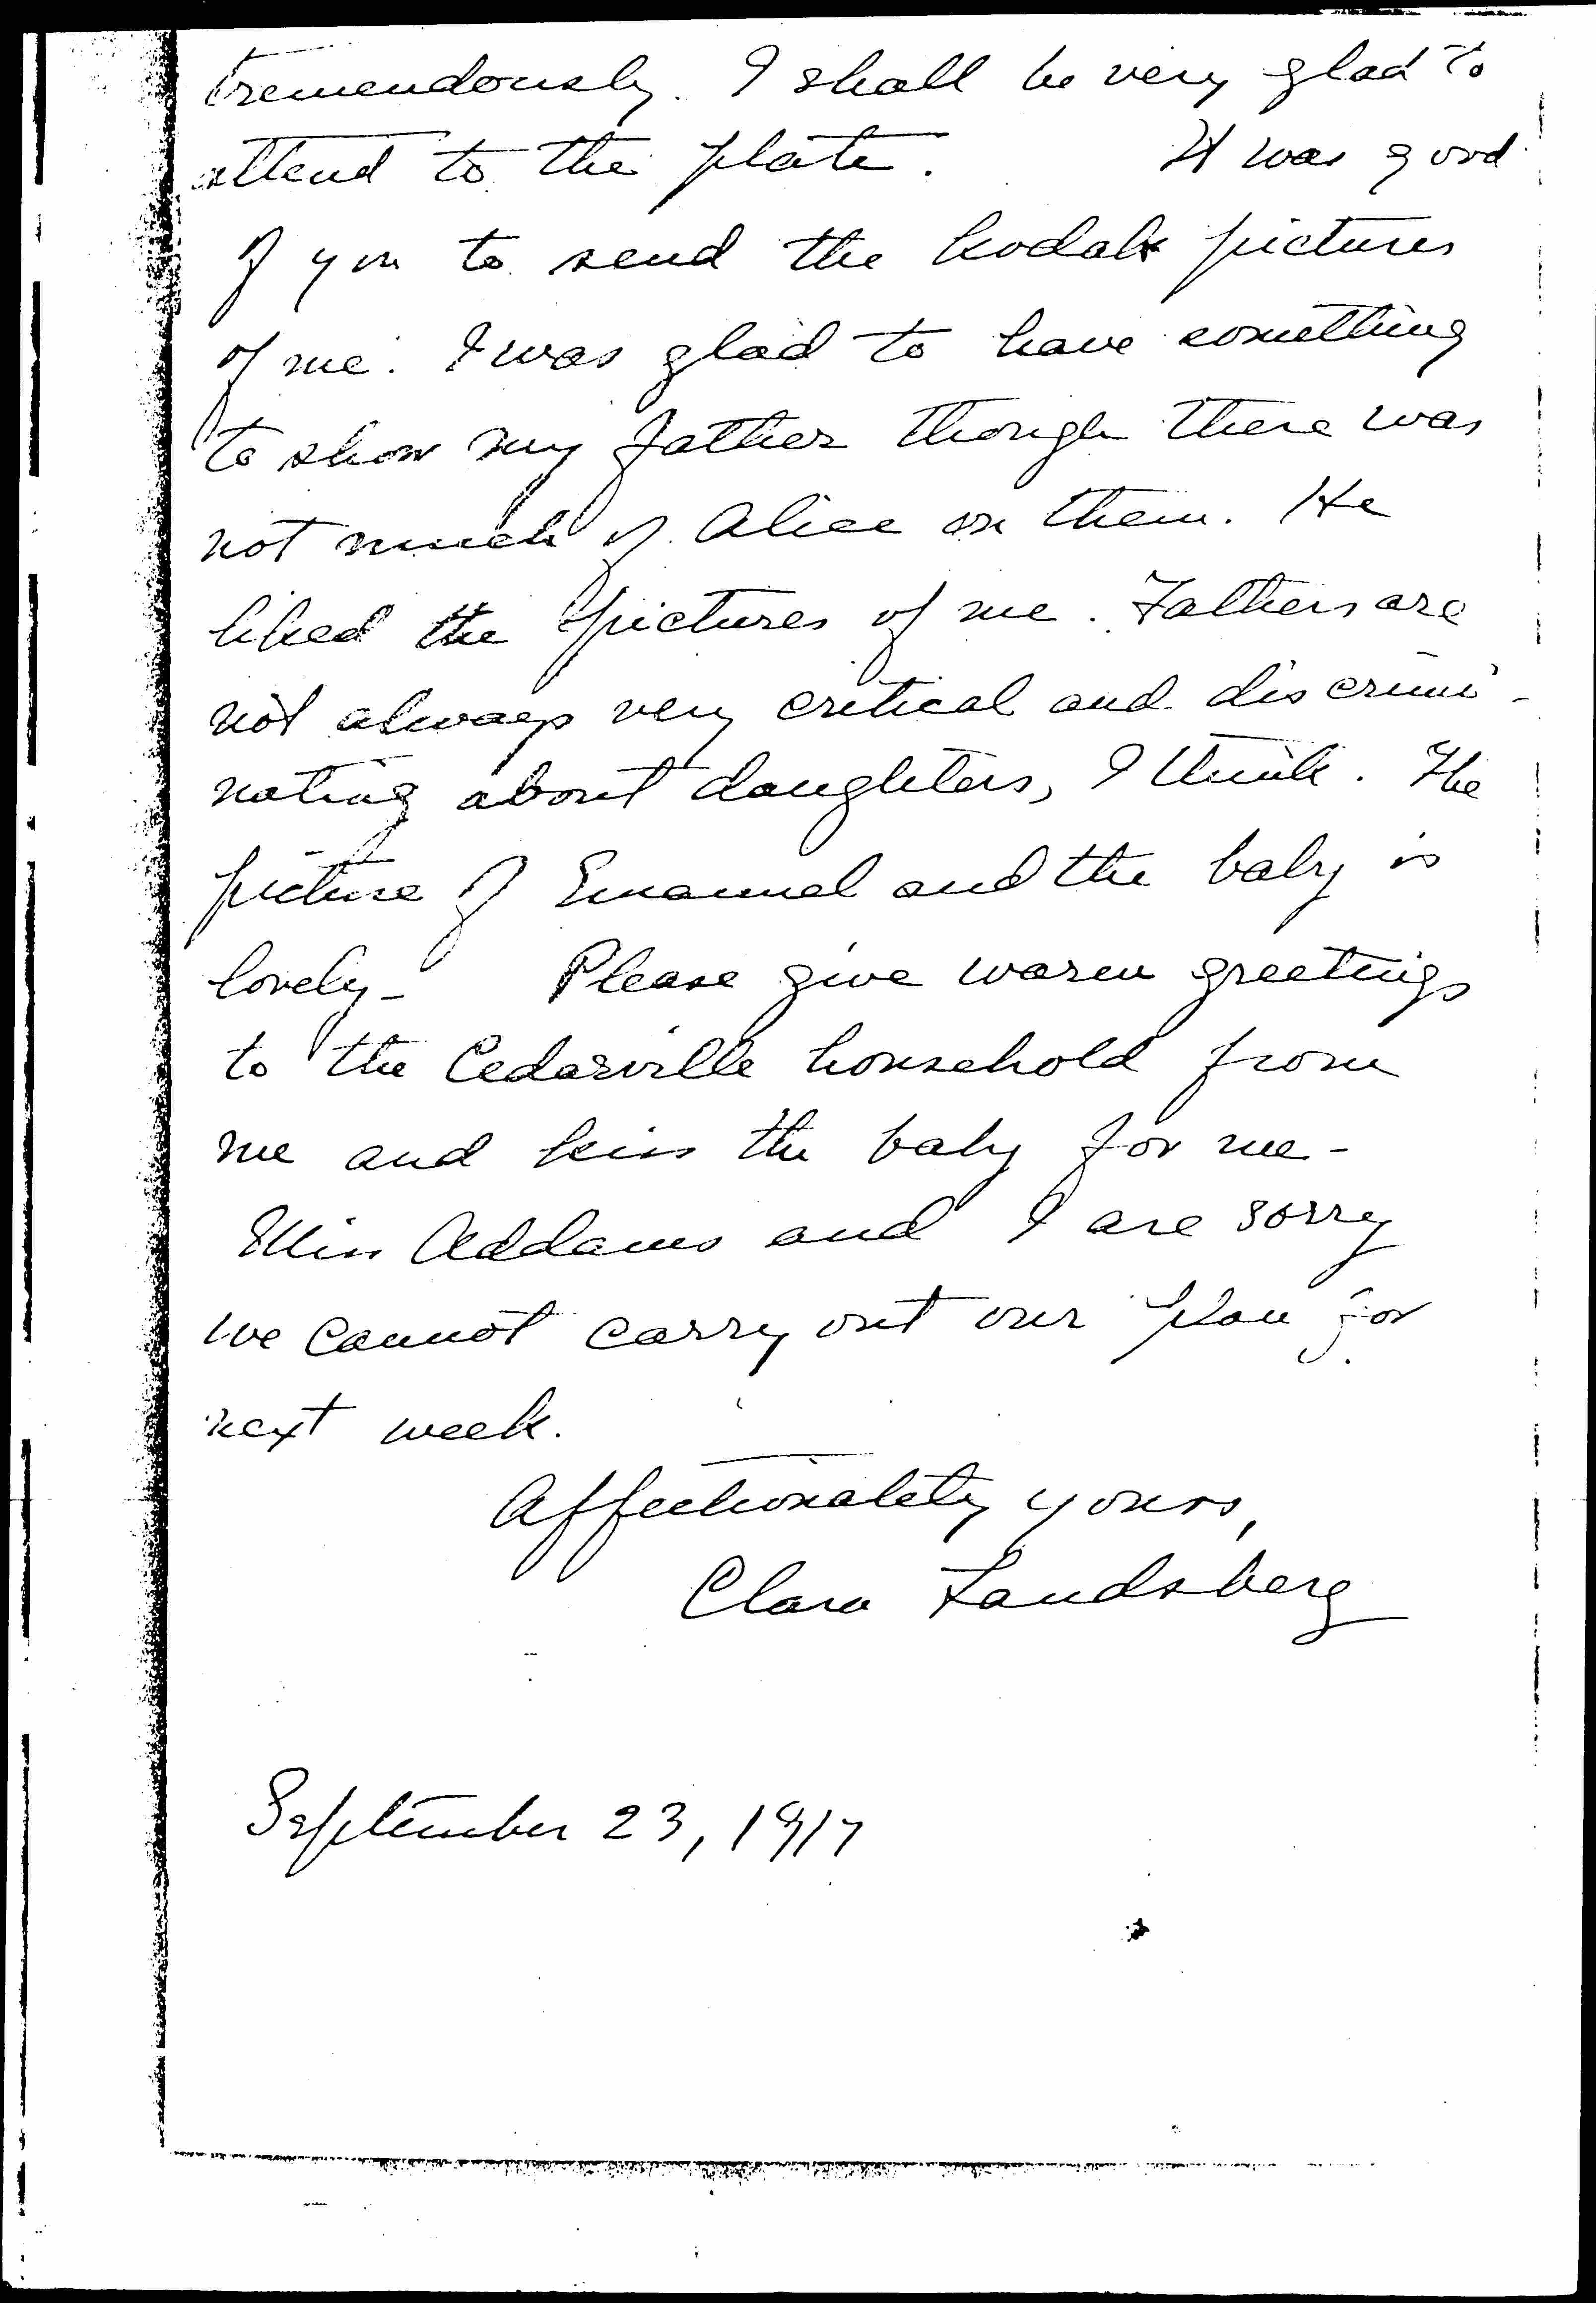 tremendously. I shall be very glad to
attend to the plate. It was good
of you to send the kodak pictures
of me. I was glad to have something
to show my father though there was
not much of Alice on them. He
liked the pictures of me. Fathers are
not always very critical and discrimi-
nating about daughters, I think. The
picture of Emanuel and the baby is
lovely- Please give warm greetings
to the Cedarville household from
me and kiss the baby for me-
Miss Addams and I are sorry
we cannot carry out our plan for
next week.
Affectionately yours,
Clara Landsberg
September 23, 1917